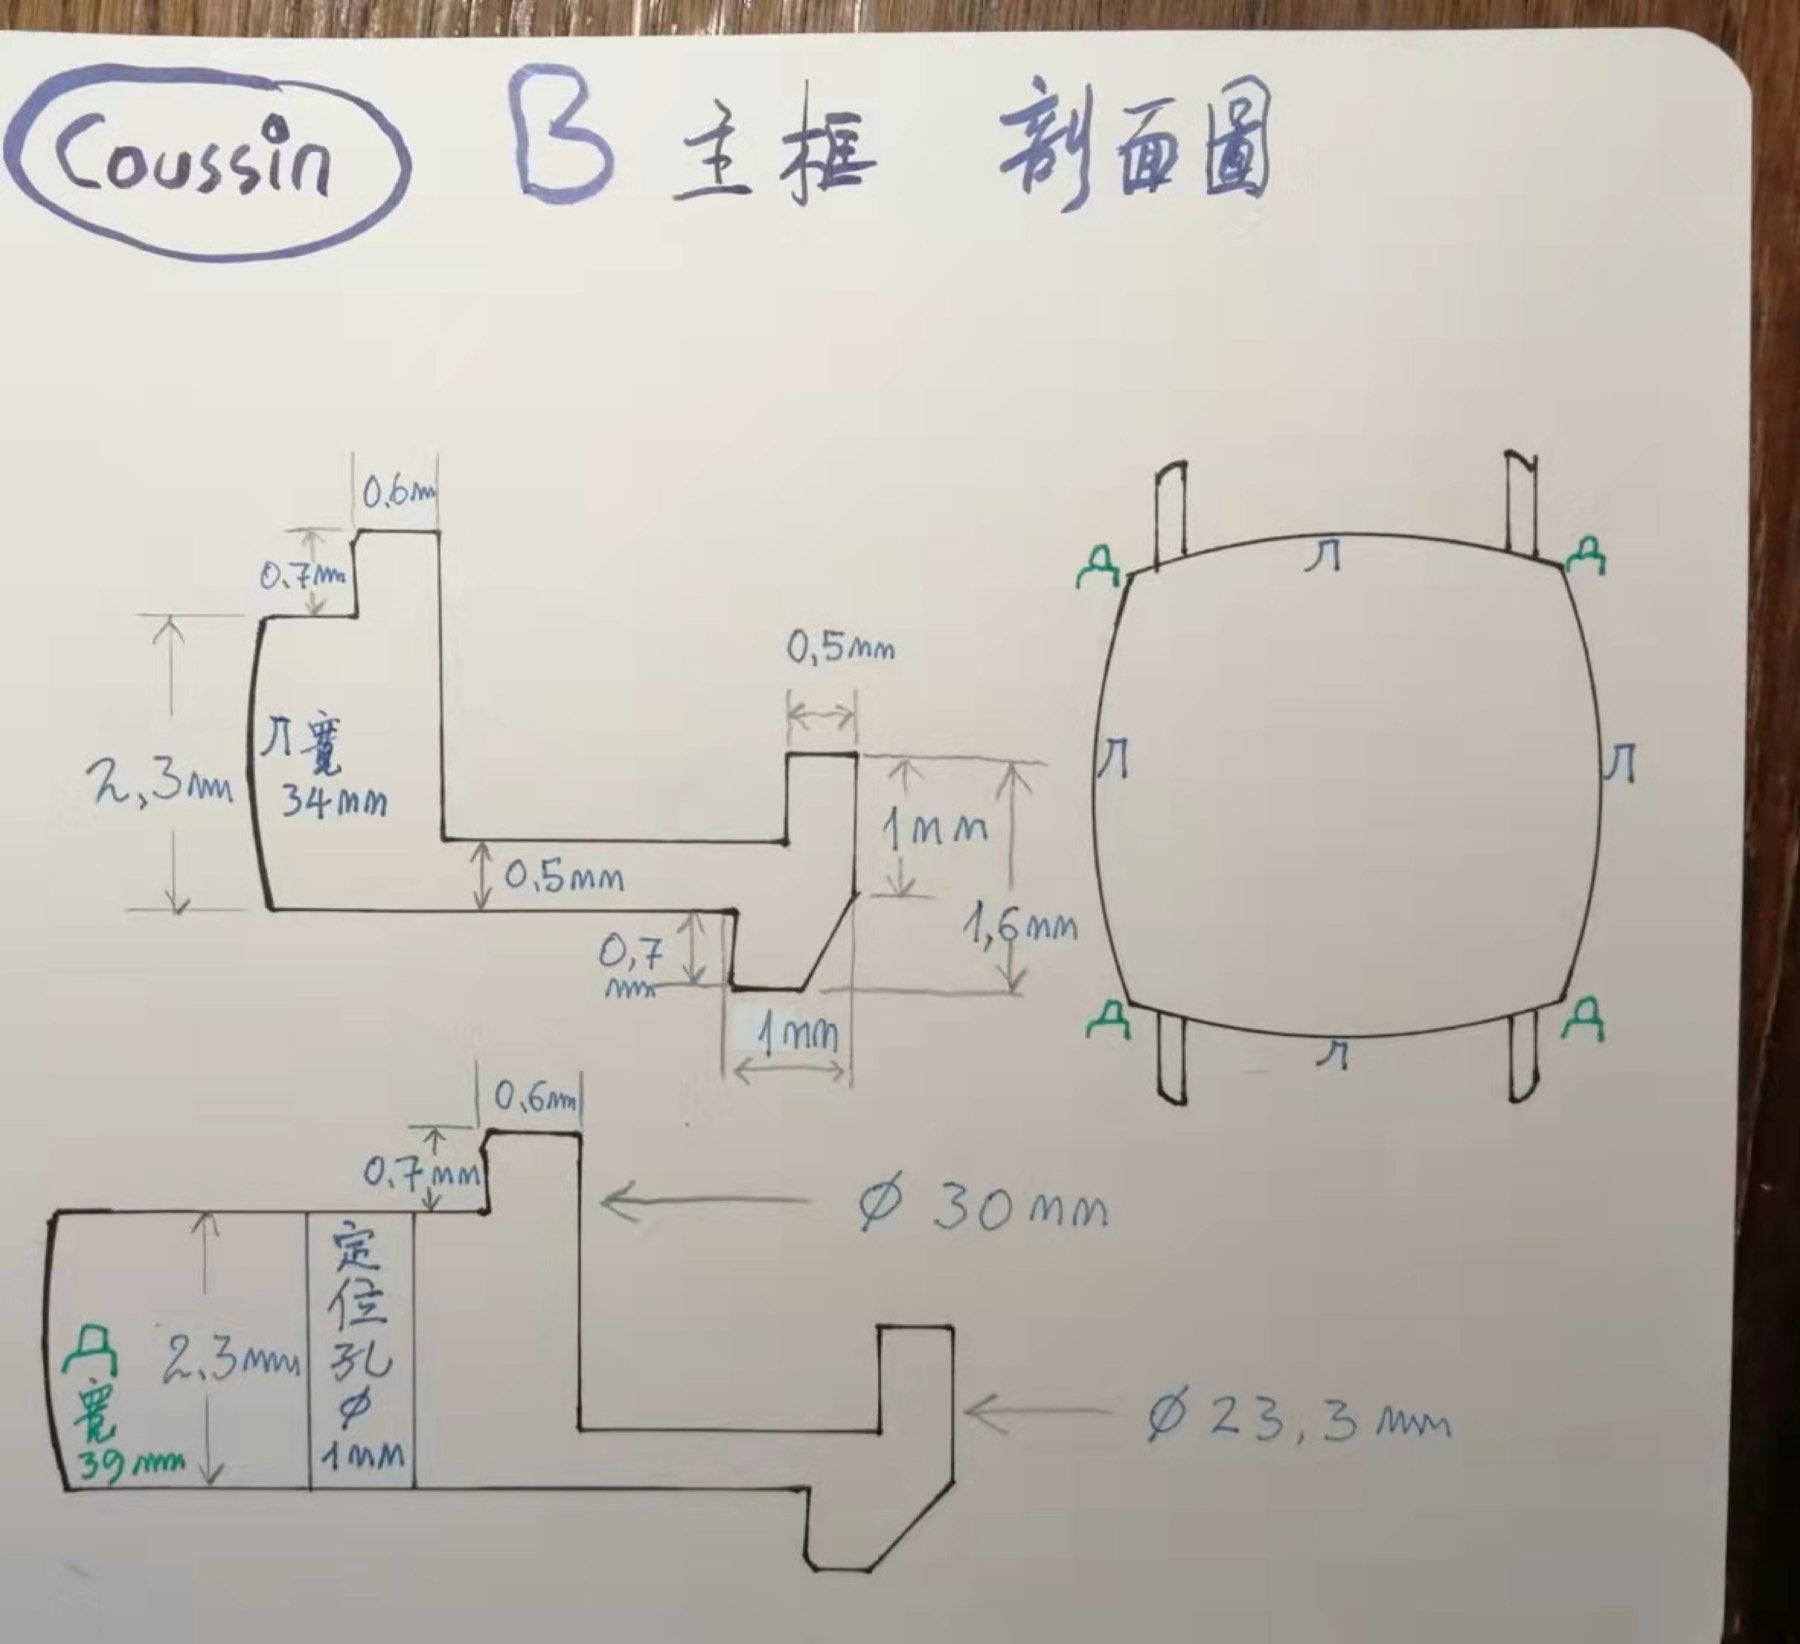 Coussin B 主框 剖面圖
0.6m
0.7mm
2,3mm
Л寬
34mm
0,5mm
1mm
0.5mm
1,6mm
0,7
mm
1mm
Д Л Д
Л Л
Д Л Д
0.6mm
0.7mm
Ø 30mm
定
位
孔
Ø
1mm
2.3mm
Д
寬
39mm
Ø 23,3mm